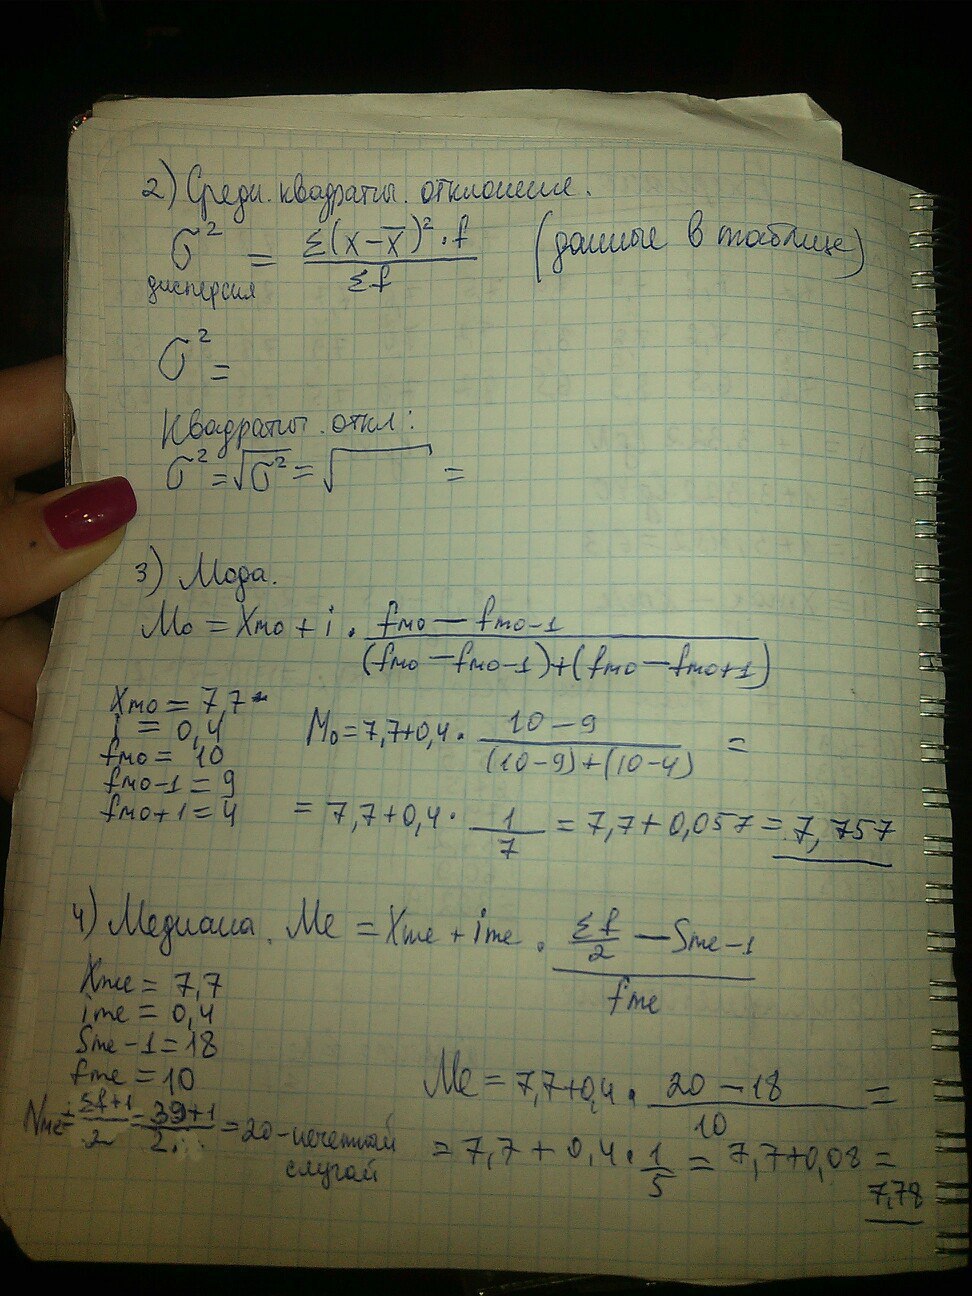 2) Средн. квадратич. отклонение.
σ² = Σ(x-x̄)²·f / Σf (данные в таблице)
дисперсия
σ² =
Квадратич. откл:
σ² = √σ² = √ =
3) Мода.
Mo = Xmo + i · fmo - fmo-1 / (fmo - fmo-1)+(fmo - fmo+1)
Xmo = 7,7
i = 0,4
fmo = 10
fmo-1 = 9
fmo+1 = 4
Mo = 7,7+0,4 · 10-9 / (10-9)+(10-4) =
= 7,7+0,4 · 1/7 = 7,7+0,057 = 7,757
4) Медиана. Me = Xme + ime · Σf/2 - Sme-1 / fme
Xme = 7,7
ime = 0,4
Sme-1 = 18
fme = 10
Nме = Σf+1/2 = 39+1/2 = 20 - нечетный
случай
Me = 7,7+0,4 · 20-18/10 =
= 7,7 + 0,4 · 1/5 = 7,7+0,08 =
7,78